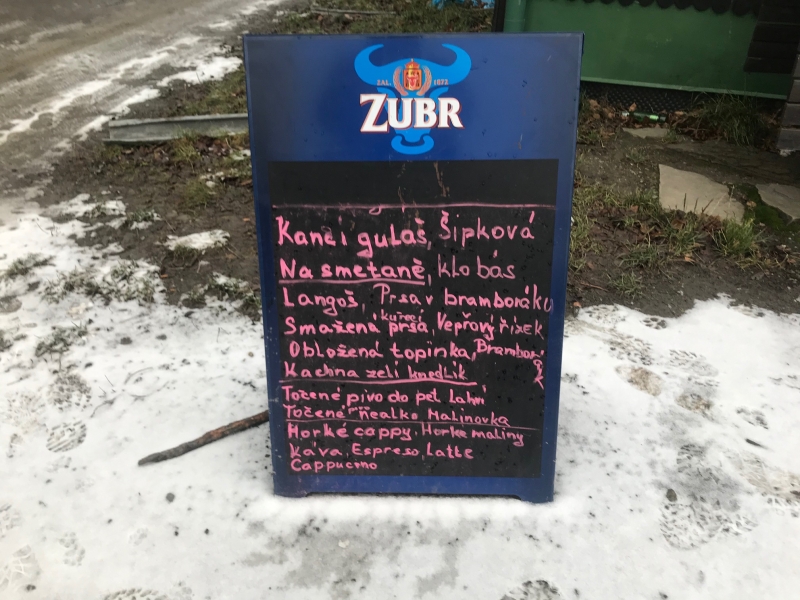 ZAL. 1872
ZUBR
Kančí guláš, Šípková
Na smetaně, klobás
Langoš, Prsa v bramboráku
Smažená kuřecí prsa, Vepřový řízek
Obložená topinka, Brambor
Kachna zelí knedlík
Točené pivo do pet. Lahví
Točené pivo nealko Malinovka
Horké cappy, Horké maliny
Káva, Espreso, Latte
Cappucino